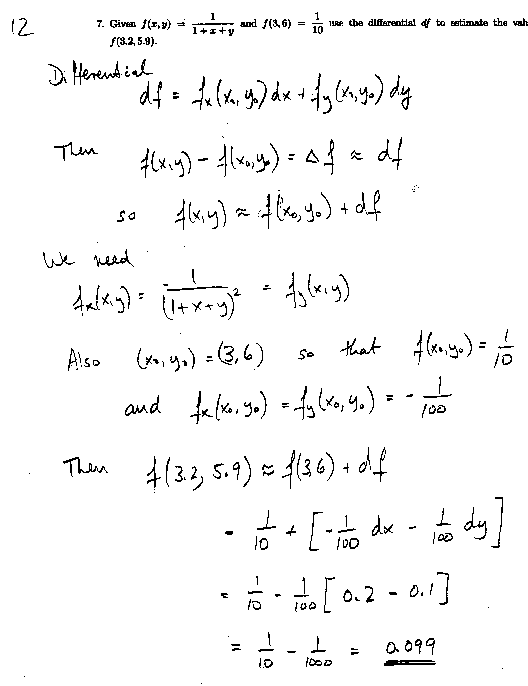 12
7. Given f(x,y) = 1/(1+x+y) and f(3,6) = 1/10 use the differential df to estimate the val
f(3.2,5.9).
Differential
df = fx(x₀,y₀)dx + fy(x₀,y₀)dy
Then f(x,y) - f(x₀,y₀) = Δf ≈ df
so f(x,y) ≈ f(x₀,y₀) + df
We need
fx(x,y) = 1/(1+x+y)² = fy(x,y)
Also (x₀,y₀) = (3,6) so that f(x₀,y₀) = 1/10
and fx(x₀,y₀) = fy(x₀,y₀) = - 1/100
Then f(3.2, 5.9) ≈ f(3,6) + df
= 1/10 + [-1/100 dx - 1/100 dy]
= 1/10 - 1/100 [0.2 - 0.1]
= 1/10 - 1/1000 = 0.099